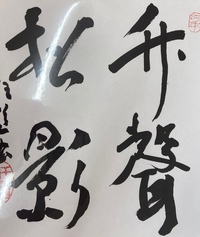 竹聲
松影